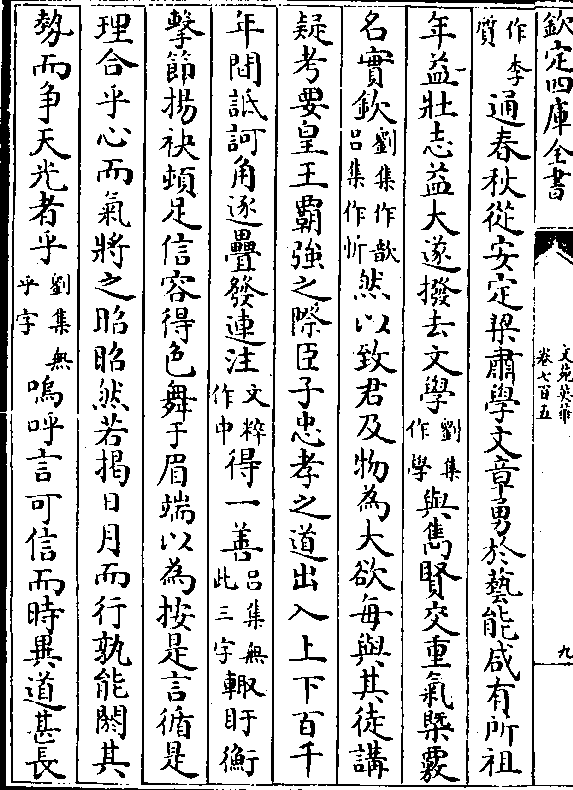 欽定四庫全書
文苑英華
卷七百五
九
作李質通春秋從安定梁肅學文章勇於藝能咸有所祖
年益壯志益大遂撥去文學劉集作學與雋賢交重氣槩覈
名實歆劉集作歆吕集作忻然以致君及物為大欲每與其徒講
疑考要皇王霸強之際臣子忠孝之道出入上下百千
年間詆訶角逐疊發連注文粹作中得一善吕集無此三字輙盱衡
擊節揚袂頓足信容得色舞于眉端以為按是言循是
理合乎心而氣將之昭昭然若揭日月而行孰能閼其
勢而爭天光者乎劉集無乎字嗚呼言可信而時異道甚長